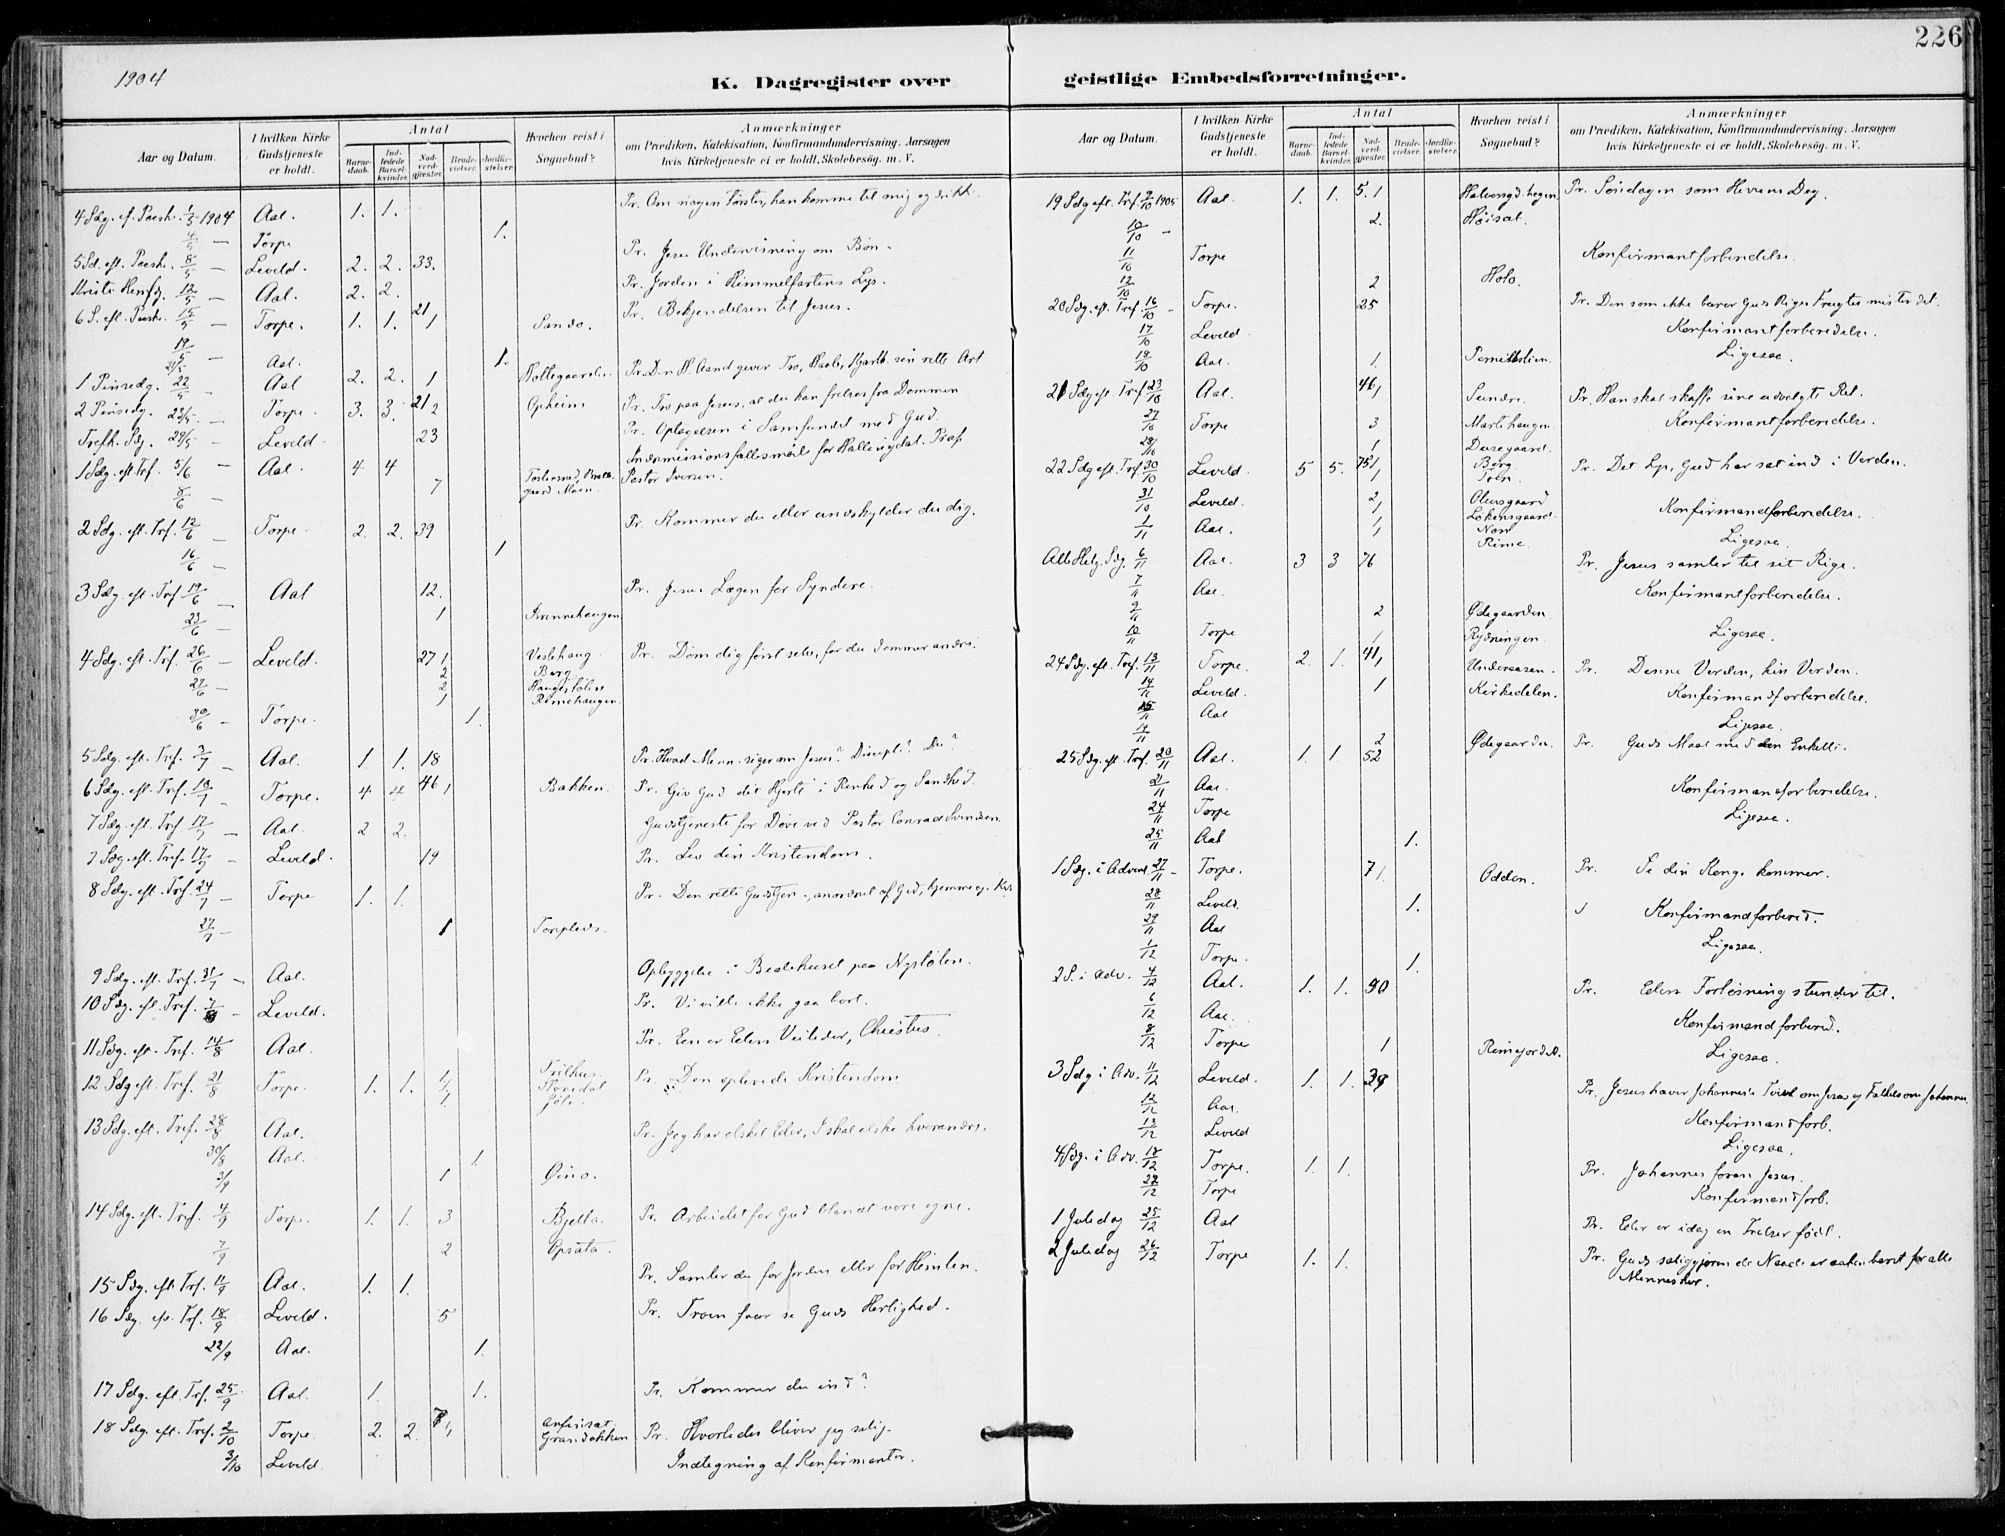 226
1904
K. Dagregister over geistlige Embedsforretninger.
Aar og Datum. I hvilken Kirke Gudstjeneste er holdt. Antal Barnedaab. Indledede Barselkvinder. Nadverdgjæster. Brudevielser. Jordfæstelser. Hvorhen reist i Sognebud? Anmærkninger om Prædiken, Katekisation, Konfirmandundervisning. Aarsagen hvis Kirketjeneste ei er holdt. Skolebesøg. m. V.
4 Sdg. ef. Paask. 1/5 1904 Aal. 1. 1. Pr. Om nogen tørster, han komme til mig og drikk.
4/5 — Torpe 1.
5 Sd. eft. Paask. 8/5 — Leveld. 2. 2. 33. Pr. Jesu Undervisning om Bøn.
Kristi Himfdg. 12/5 — Aal. 2. 2. Pr. Jorden i Himmelfartens Lys.
6 S. eft. Paask. 15/5 — Torpe. 1. 1. 21 1 Sando. Pr. Bekjendelsen til Jesus.
19/5 — Aal. 1.
21/5
1 Pinsedg. 22/5 — Aal 2. 2. 1 Pr. Den H. Aand giver Tro, Haab, Kjærlh. sin rette Art
2 Pinsedg. 23/5 — Torpe. 3. 3. 21 2 Opheim Pr. Tro paa Jesus, at du kan frelses fra Dommen
Trefh. Sdg. 29/5 — Leveld. 23 Pr. Optagelsen i Samfundet med Gud.
1 Sdg. eft. Trf. 5/6 — Aal. 4 4 Indremissionsfællesmøde for Hallingdal. Præk.
8/6 — 7 Moen. Pastor Iversen.
2 Sdg. eft. Trf. 12/6 — Torpe. 2. 2. 39 Pr. Kommer du eller undskylder du dig.
16/6 — 1
3 Sdg. eft. Trf. 19/6 — Aal 12. Pr. Jesus Lægen for Syndere.
23/6 — 1
4 Sdg. eft. Trf. 26/6 — Leveld. 27 1 Veslehaug Pr. Døm dig først selv, før du dømmer andre.
2 Berg
27/6 — 2 Haugestølen
1 Rimehaugen
30/6 — Torpe. 1.
5 Sdg. eft. Trf. 3/7 — Aal. 1. 1. 18 Pr. Hvad Menn. siger om Jesus? Discipl.? Du?
6 Sdg. eft. Trf. 10/7 — Torpe. 4 4 46 1 Bakken. Pr. Giv Gud dit Hjerte i Renhed og Sandhed.
7 Sdg. eft. Trf. 12/7 — Aal. 2 2. Gudstjeneste for Døve ved Pastor Conrad Svendsen.
7 Sdg. eft. Tref. 17/7 — Leveld. 19 Pr. Lev din Kristendom.
8 Sdg. eft. Trf. 24/7 — Torpe 1. 1. Pr. Den rette Gudstjen., anordnet af Gud, hjemme og i Kir.
27/7 — 1
9 Sdg. eft. Trf. 31/7 — Aal. Opbyggelse i Bedehuset paa Nystølen.
10 Sdg. eft. Tref. 7/8 — Leveld. Pr. Vi ville ikke gaa bort.
11 Sdg. eft. Tref. 14/8 Aal. Pr. Een er Eders Veileder, Christus.
12 Sdg. eft. Tref. 21/8 Torpe. 1. 1. Pr. Den oplevede Kristendom.
13 Sdg. eft. Tref. 28/8 Aal. Pr. Jeg har elsket Eder, I skal elske hverandre.
30/8 Aal. 1.
3/9 1
14 Sdg. eft. Tref. 4/9 Torpe. 1. 1. 3 Bjella. Pr. Arbeidet for Gud blandt vore egne.
7/9 2 Opsata.
15 Sdg. eft. Trf. 11/9 Aal. 1. 1. Pr. Samler du for Jorden eller for Himlen.
16 Sdg. ef. Trf. 18/9 Leveld. 5 Pr. Troen faar se Guds Herlighed.
22/9 Aal. 1.
17 Sdg. eft. Trf. 25/9 Aal. 1. 1. Pr. Kommer du ind?
18 Sdg. eft. Tref. 2/10 Torpe 2. 2. Pr. Hvorledes bliver jeg salig.
3/10 Leveld. Indtegning af Konfirmanter.
Aar og Datum. I hvilken Kirke Gudstjeneste er holdt. Antal Barnedaab. Indledede Barselkvinder. Nadverdgjæster. Brudevielser. Jordfæstelser. Hvorhen reist i Sognebud? Anmærkninger om Prædiken, Katekisation, Konfirmandundervisning. Aarsagen hvis Kirketjeneste ei er holdt. Skolebesøg. m. V.
19 Sdg eft. Trf. 9/10 Aal. 1. 1. 5. 1 Pr. Søndagen som Herrens Dag.
10/10 — 2.
11/10 Torpe Konfirmantforberedelse.
12/10 2 Holo.
20 Sdg. eft. Tref. 16/10 — Torpe. 25 Pr. Den som ikke bærer Guds Riges Frugter mister det.
17/10 Leveld. Konfirmantforberedelse.
18/10 Aal. 1. Ligesaa.
21 Sdg eft. Tref 23/10 Aal. 46 1 Sundre. Pr. Han skal skaffe sine udvalgte Ret.
27/10 Torpe 3 Konfirmantforberedelse.
28/10 1
22 Sdg eft. Trf 30/10 Leveld. 5 5. 75 1 Berg. Pr. Det Lys, Gud har sat ind i Verden.
31/10 Leveld. 2 Konfirmandforberedelse.
1/11 Aal. 1 Ligesaa.
Rime.
Alle Helg. Sdg. 6/11 Aal. 3 3 76 Pr. Jesus samler til sit Rige.
7/11 Aal. Konfirmantforberedelse.
9/11 2 Ødegaarden.
10/11 Torpe 1 Rydningen. Ligesaa.
24 Sdg. eft. Tref. 13/11 Torpe. 2. 1. 41 1 Underaasen. Pr. Denne Verden, hin Verden.
14/11 Leveld. 1 Kirkedelen. Konfirmandforberedelse.
15/11 Aal Ligesaa.
19/11 2 Ødegaarden.
25 Sdg. eft. Trf. 20/11 Aal. 1. 1. 52 Pr. Guds Maal med den Enkelte.
21/11 Aal. Konfirmandforberedelse.
24/11 Torpe Ligesaa.
25/11 Aal 1.
1 Sdg. i Advent. 27/11 — Torpe. 7 1. Odden. Pr. Se din Konge kommer.
28/11 Leveld. 1. Konfirmandforbered.
29/11 Aal Ligesaa.
1/12 Torpe. 1.
2 S. i Adv. 4/12 Aal. 1. 1. 50 Pr. Eders Forløsning stunder til.
6/12 Aal. Konfirmandforbered.
8/12 Torpe 1 Ligesaa.
3 Sdg i Adv. 11/12 Leveld. 1. 1. 39 Pr. Jesus hører Johannes's Tvivl om Jesus og Folkets om Johannes.
12/12 Aal. Konfirmandforb.
13/12 Leveld Ligesaa.
4 Sdg. i Adv. 18/12 Torpe. 1. 1. Pr. Johannes foran Jesus.
22/12 Torpe Konfirmandforb.
1 Juledag 25/12 Aal Pr. Eder er idag en Frelser født.
2 Juledag 26/12 Torpe 1. 1. Pr. Guds saliggjørende Naade er aabenbaret for alle
Mennesker.